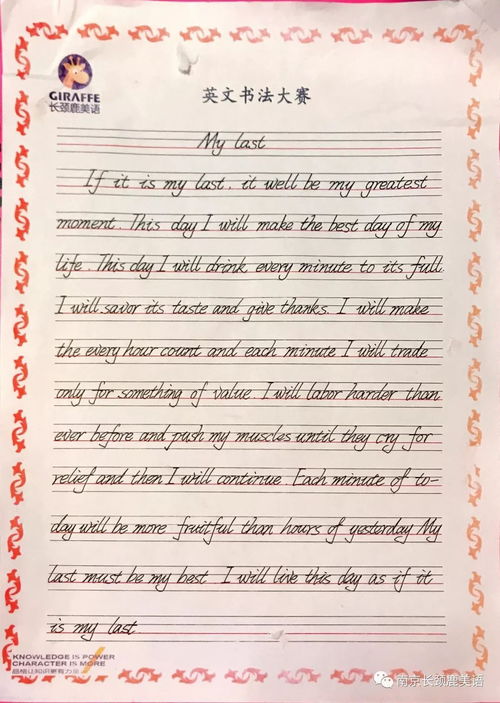 GIRAFFE
长颈鹿美语
英文书法大赛
My last
If it is my last, it well be my greatest
moment. This day I will make the best day of my
life. This day I will drink every minute to its full.
I will savor its taste and give thanks. I will make
the every hour count and each minute I will trade
only for something of value. I will labor harder than
ever before and push my muscles until they cry for
relief and then I will continue. Each minute of to-
day will be more fruitful than hours of yesterday My
last must be my best. I will live this day as if it
is my last.
KNOWLEDGE IS POWER
CHARACTER IS MORE
品格让知识更有力量
南京长颈鹿美语